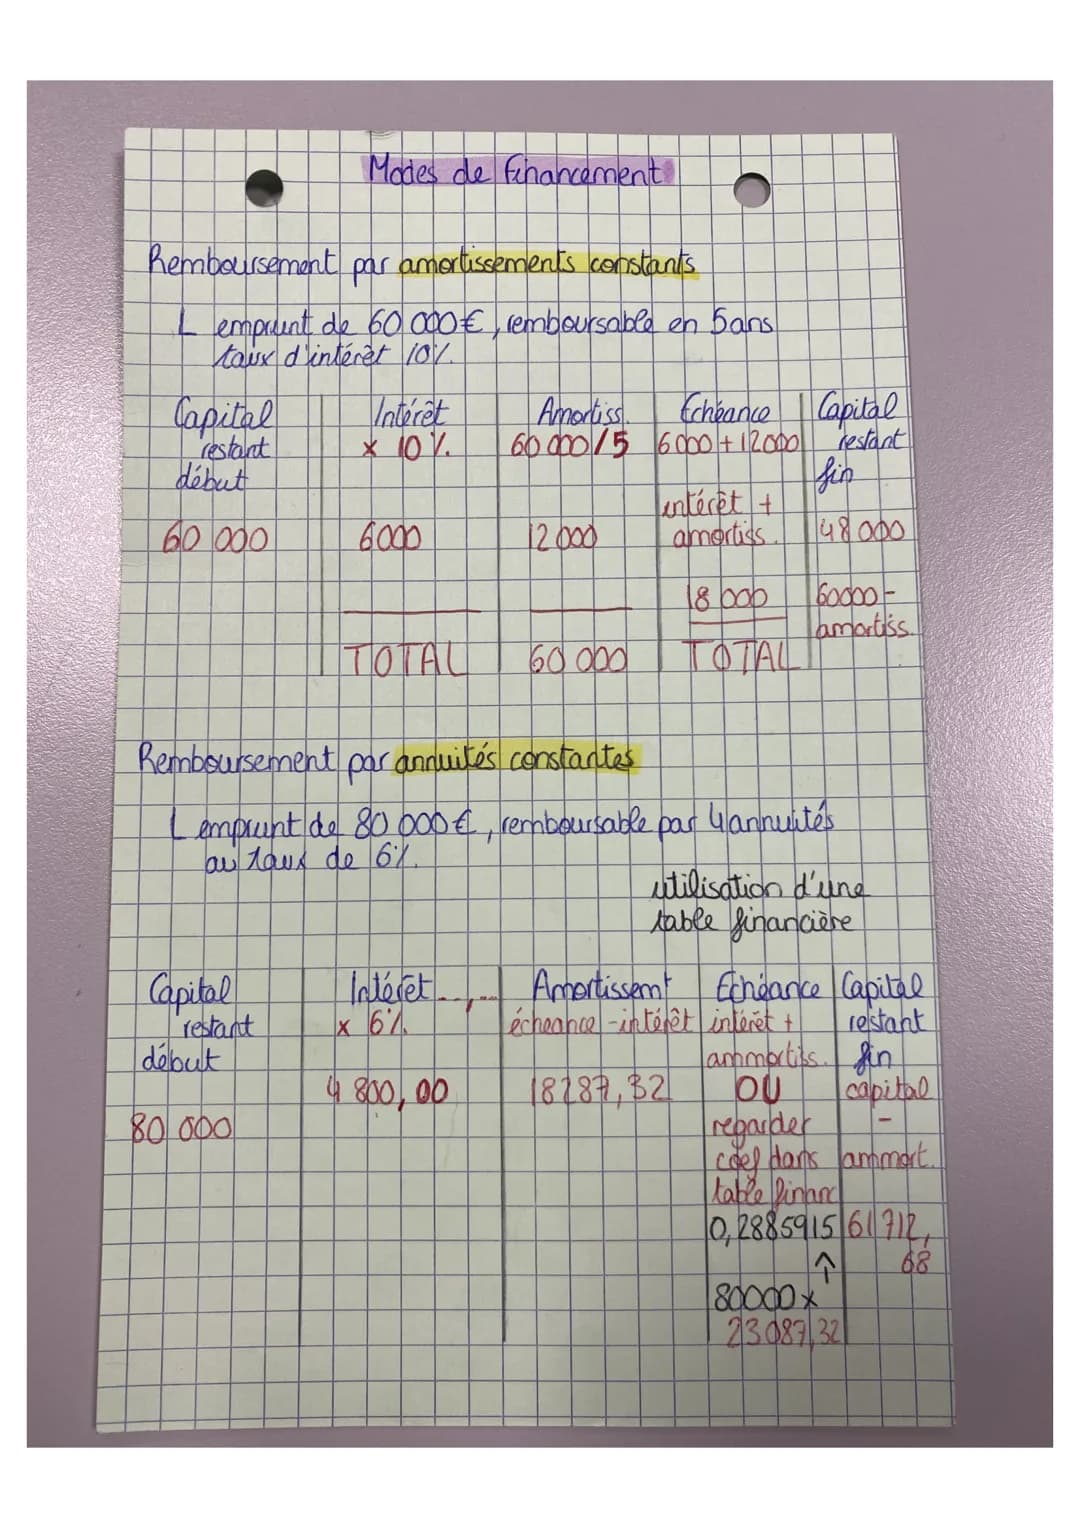 Modes de financement
Remboursement par amortissements constants
L emprunt de 60 000€, remboursable en 5 ans
taux d'intérêt 10%.
Capital restant début | Intérêt x 10%. | Amortiss. 60 000/5 | Echéance 6000 + 12000 | Capital restant fin
intérêt + amortiss.
60 000 | 6000 | 12 000 | 18 000 | 48 000
60000 - amortiss.
TOTAL | 60 000 | TOTAL
Remboursement par annuités constantes
L emprunt de 80 000€, remboursable par 4 annuités
au taux de 6%.
utilisation d'une
table financière
Capital restant début | Intérêt x 6%. | Amortissemt échéance - intérêt | Echéance intérêt + ammortiss. | Capital restant fin
OU | capital
80 000 | 4 800,00 | 18287,32 | regarder | -
coef dans | ammort.
table financ
0,2885915 | 61 712,68
↑
80000 x
23 087,32